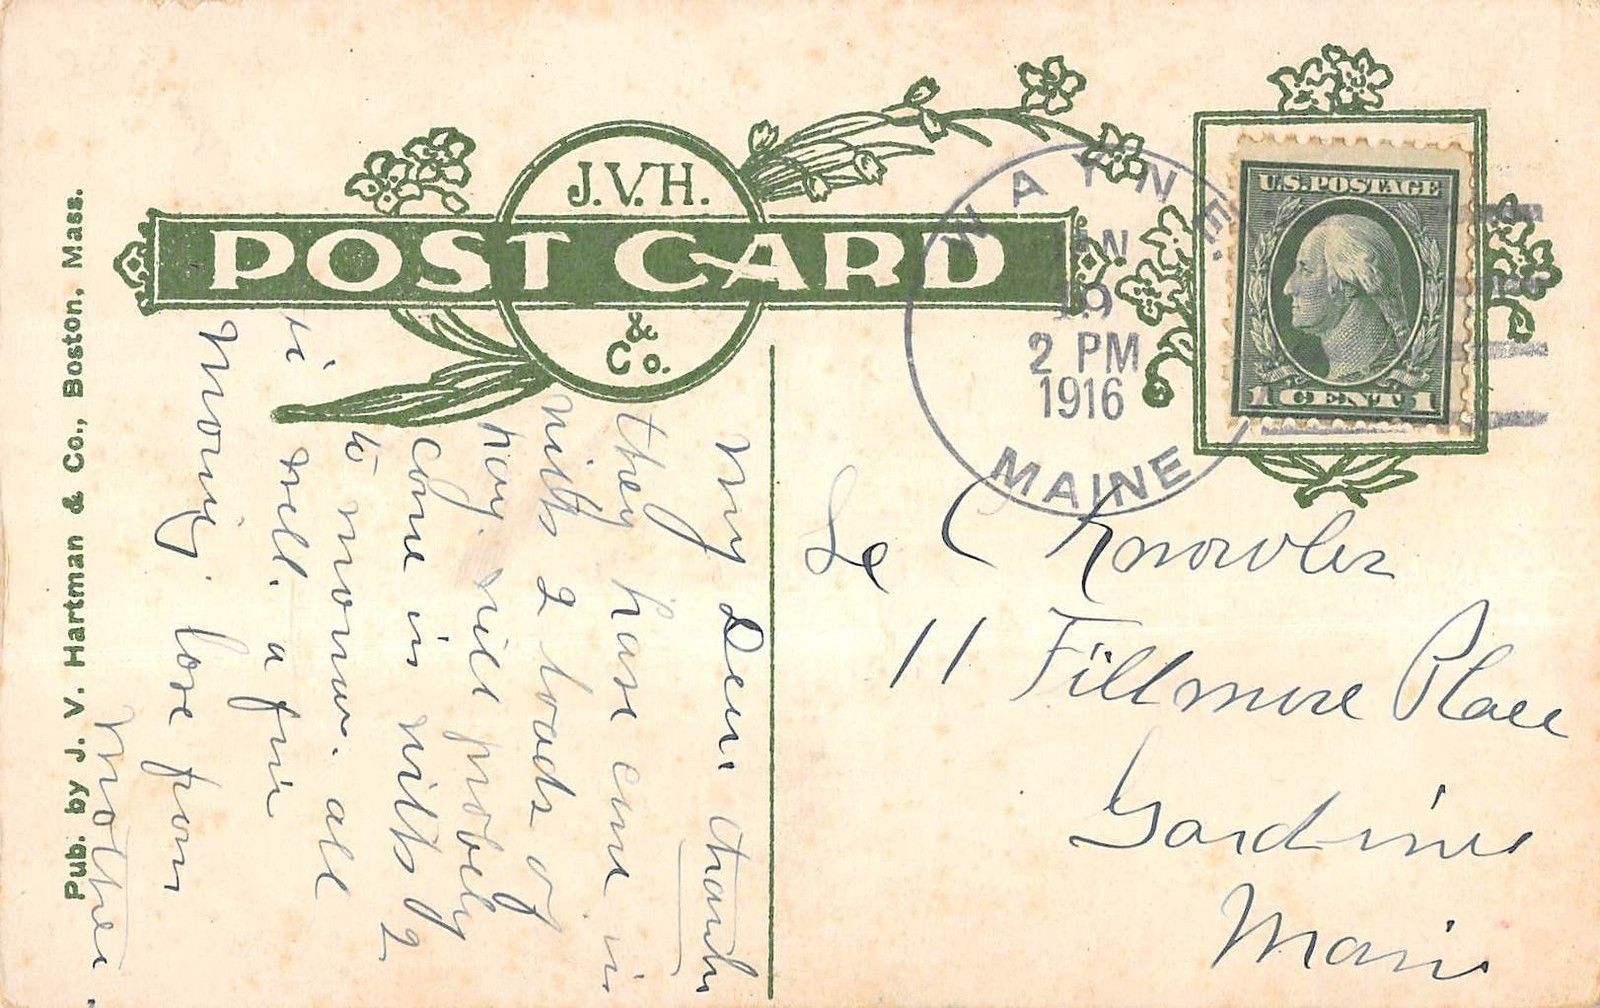 J.V.H.
POST CARD
& Co.
Pub. by J. V. Hartman & Co., Boston, Mass.
WAYNE.
19
2 PM
1916
MAINE
U.S. POSTAGE
1 CENT 1
My Dear
they have came in
with 2 loads of
hay. will probely
come in with 2
to morrow. all
is well. a fine
Moring. love from
Mother
C Knowles
11 Fillmore Place
Gardiner
Maine